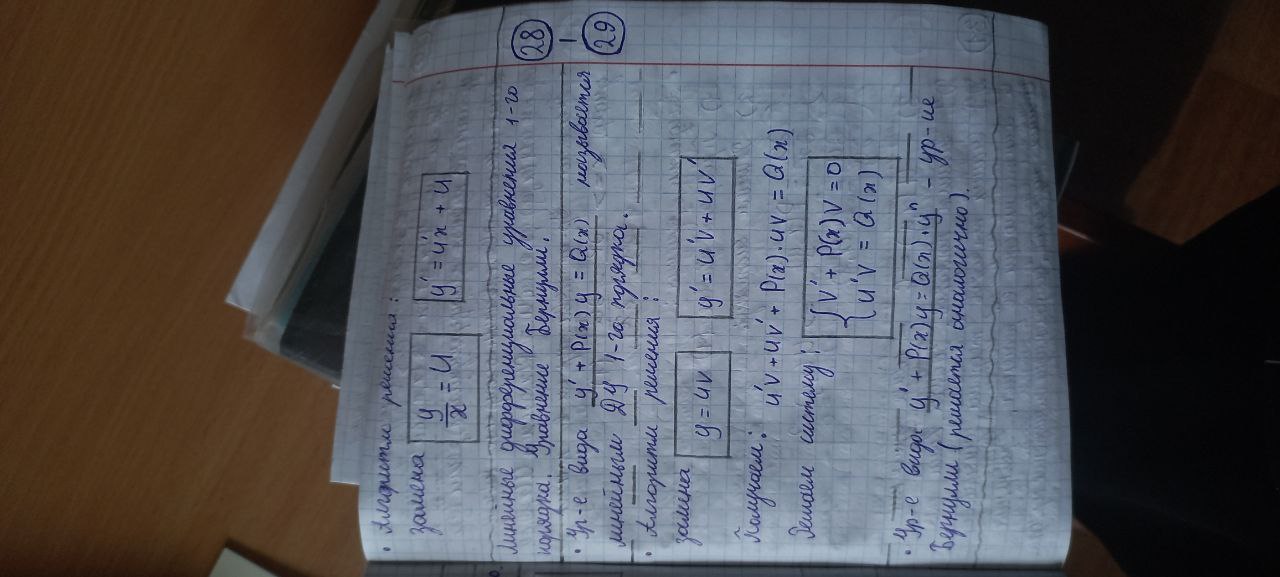 • Алгоритм решения:
замена y/x = u y' = u'x + u
Линейные дифференциальные уравнения 1-го
порядка. Уравнение Бернулли.
28 – 29
• Ур-е вида y' + P(x)y = Q(x) называется
линейным ДУ 1-го порядка.
• Алгоритм решения:
замена y = uv y' = u'v + uv'
Получаем: u'v + uv' + P(x)·uv = Q(x)
Решаем систему: { v' + P(x)v = 0
u'v = Q(x)
• Ур-е вида y' + P(x)y = Q(x)·yⁿ – ур-ие
Бернулли (решается аналогично).